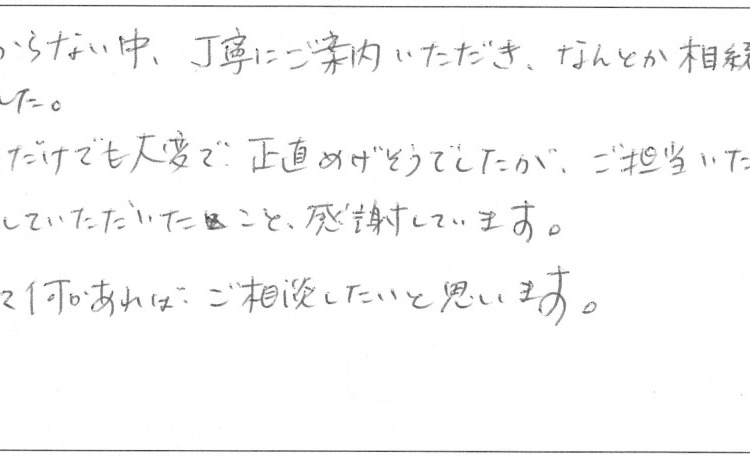 からない中、丁寧にご案内いただき、なんとか相続
した。
だけでも大変で、正直めげそうでしたが、ご担当いた
していただいたこと、感謝しています。
て何かあれば、ご相談したいと思います。